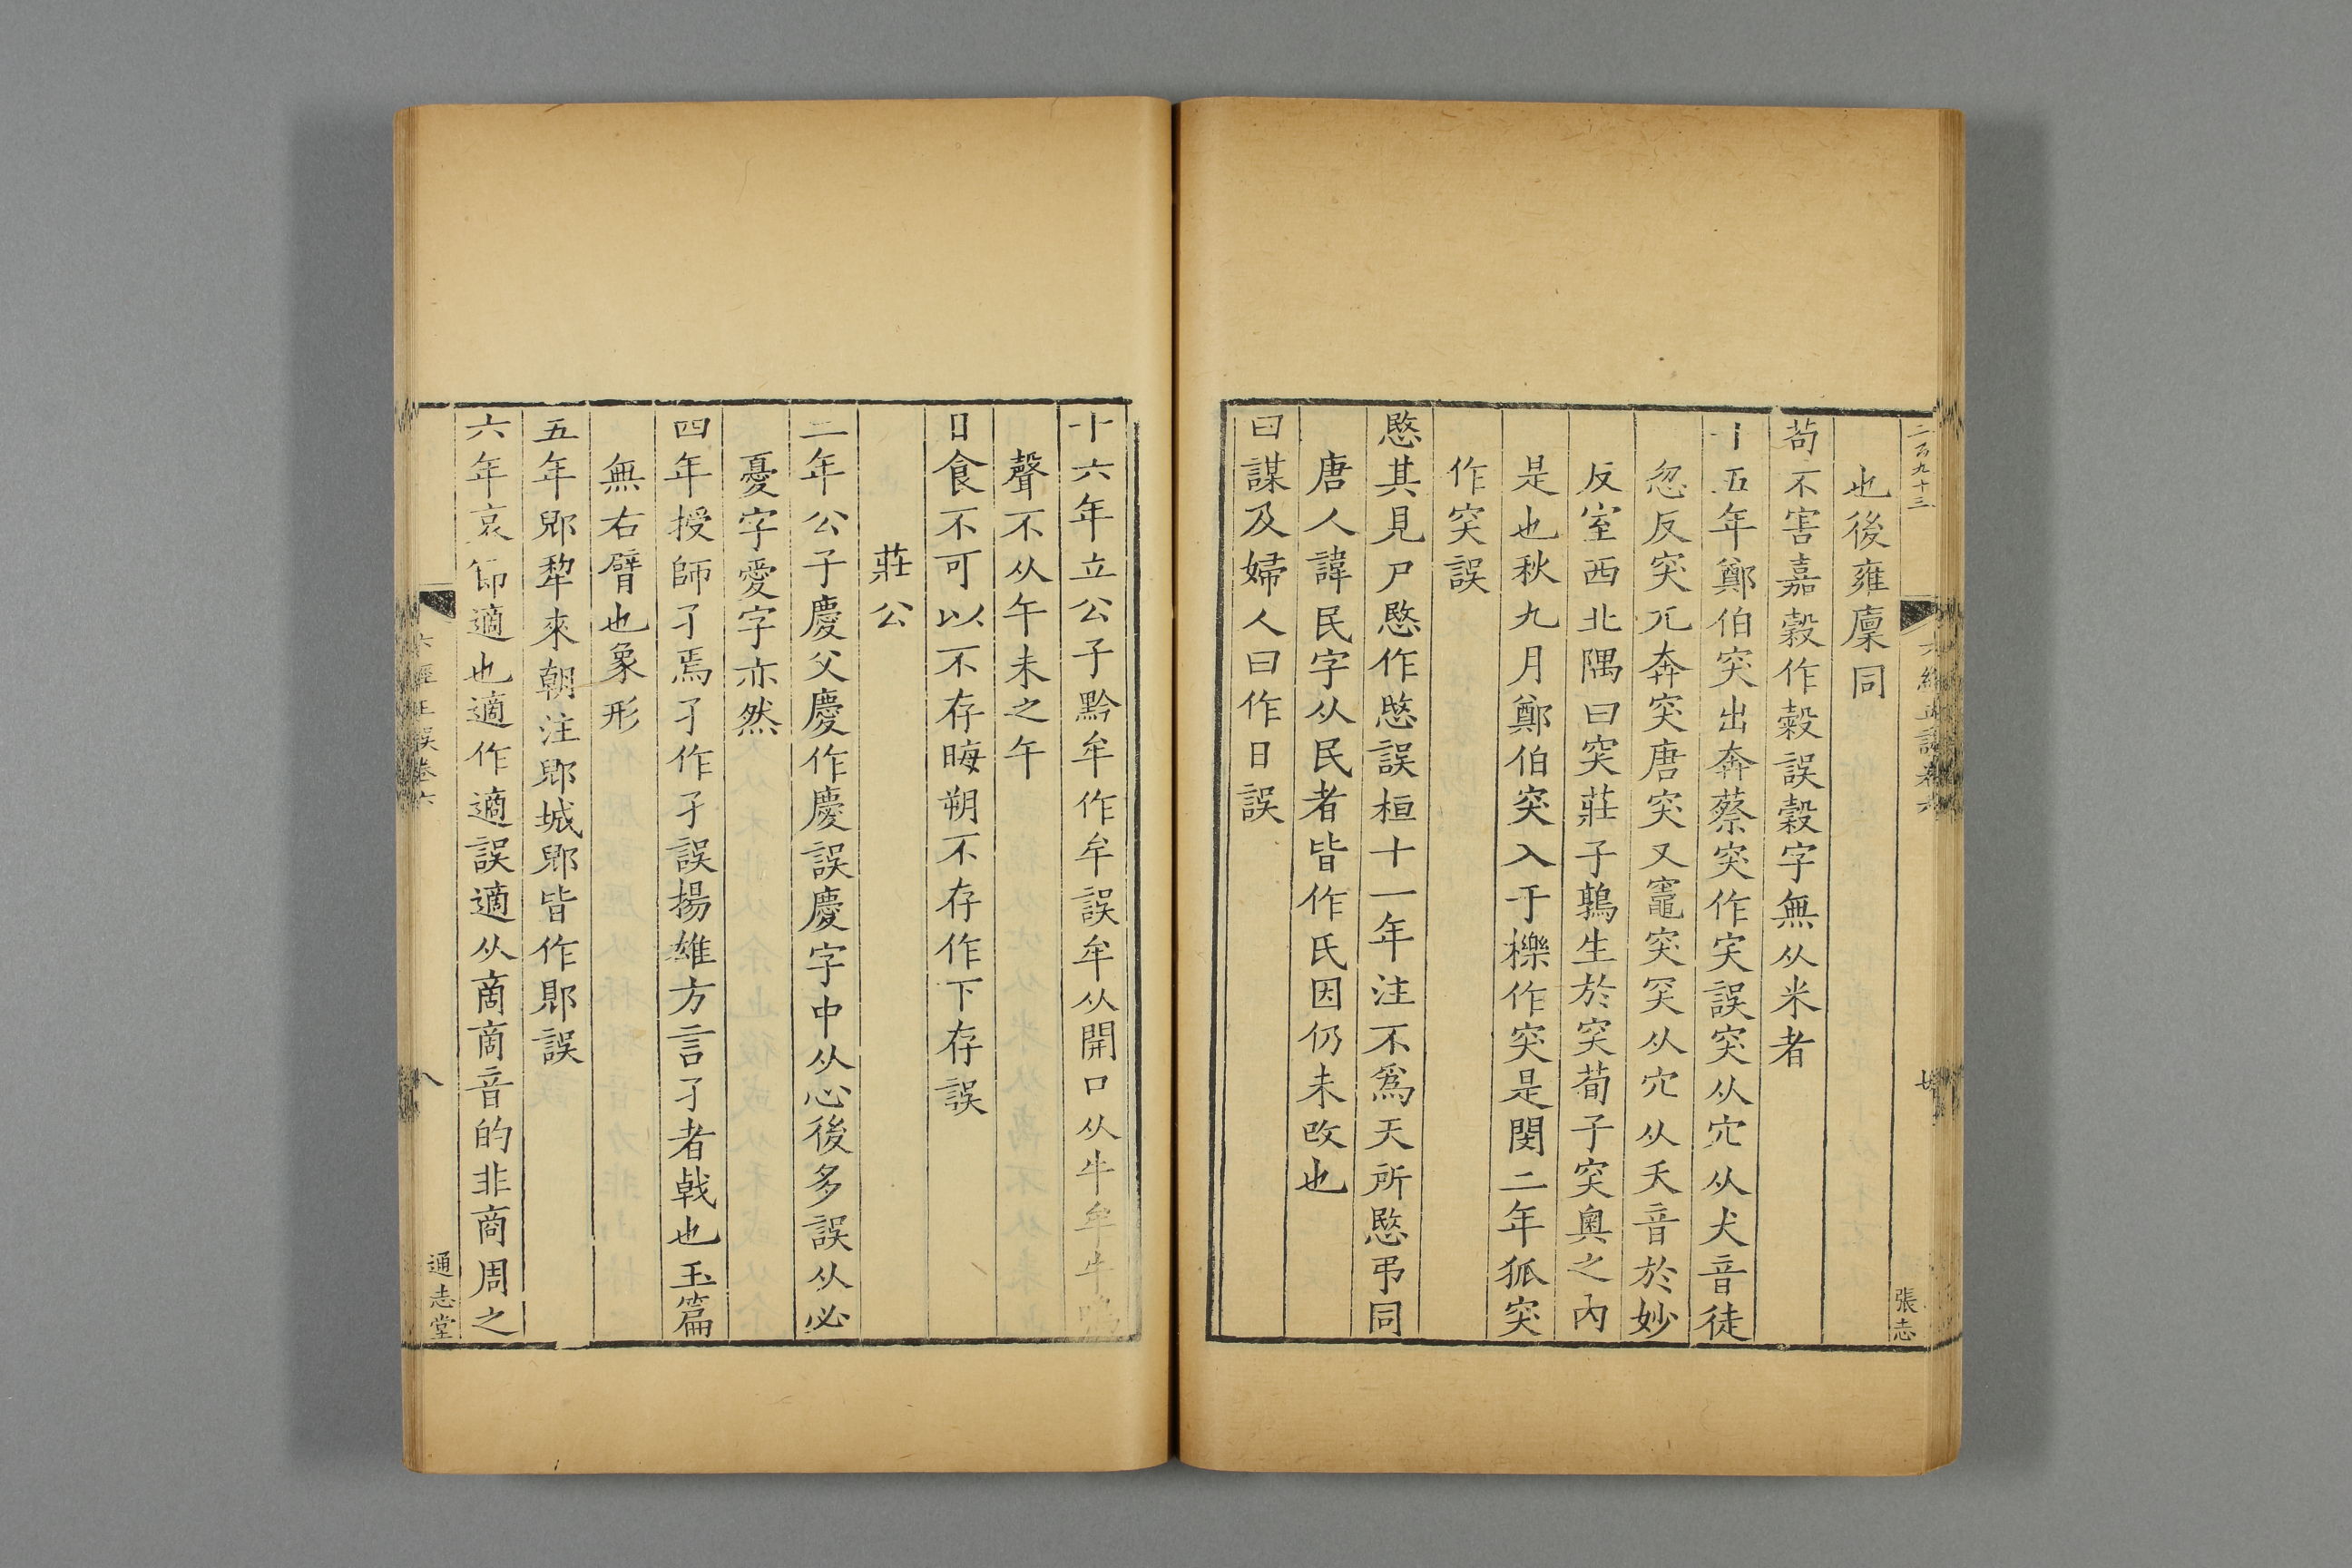 二百九十三
六經正誤卷六
七
張志
也後雍廩同
苟不害嘉穀作糓誤穀字無从米者
十五年鄭伯突出奔蔡突作宊誤突从穴从犬音徒
忽反突兀奔突唐突又竈突穾从穴从夭音於妙
反室西北隅曰突莊子鶉生於突荀子突奧之內
是也秋九月鄭伯突入于櫟作突是閔二年狐突
作突誤
愍其見尸愍作愍誤桓十一年注不爲天所愍弔同
唐人諱民字从民者皆作氏因仍未改也
曰謀及婦人曰作日誤
十六年立公子黔牟作牟誤牟从開口从牛牟牛鳴
聲不从午未之午
日食不可以不存晦朔不存作下存誤
莊公
二年公子慶父慶作慶誤慶字中从心後多誤从必
憂字愛字亦然
四年授師孑焉孑作子誤揚雄方言孑者戟也玉篇
無右臂也象形
五年郳犂來朝注郳城郳皆作郥誤
六年哀節適也適作適誤適从啇啇音的非商周之
六經正誤卷六
八
通志堂